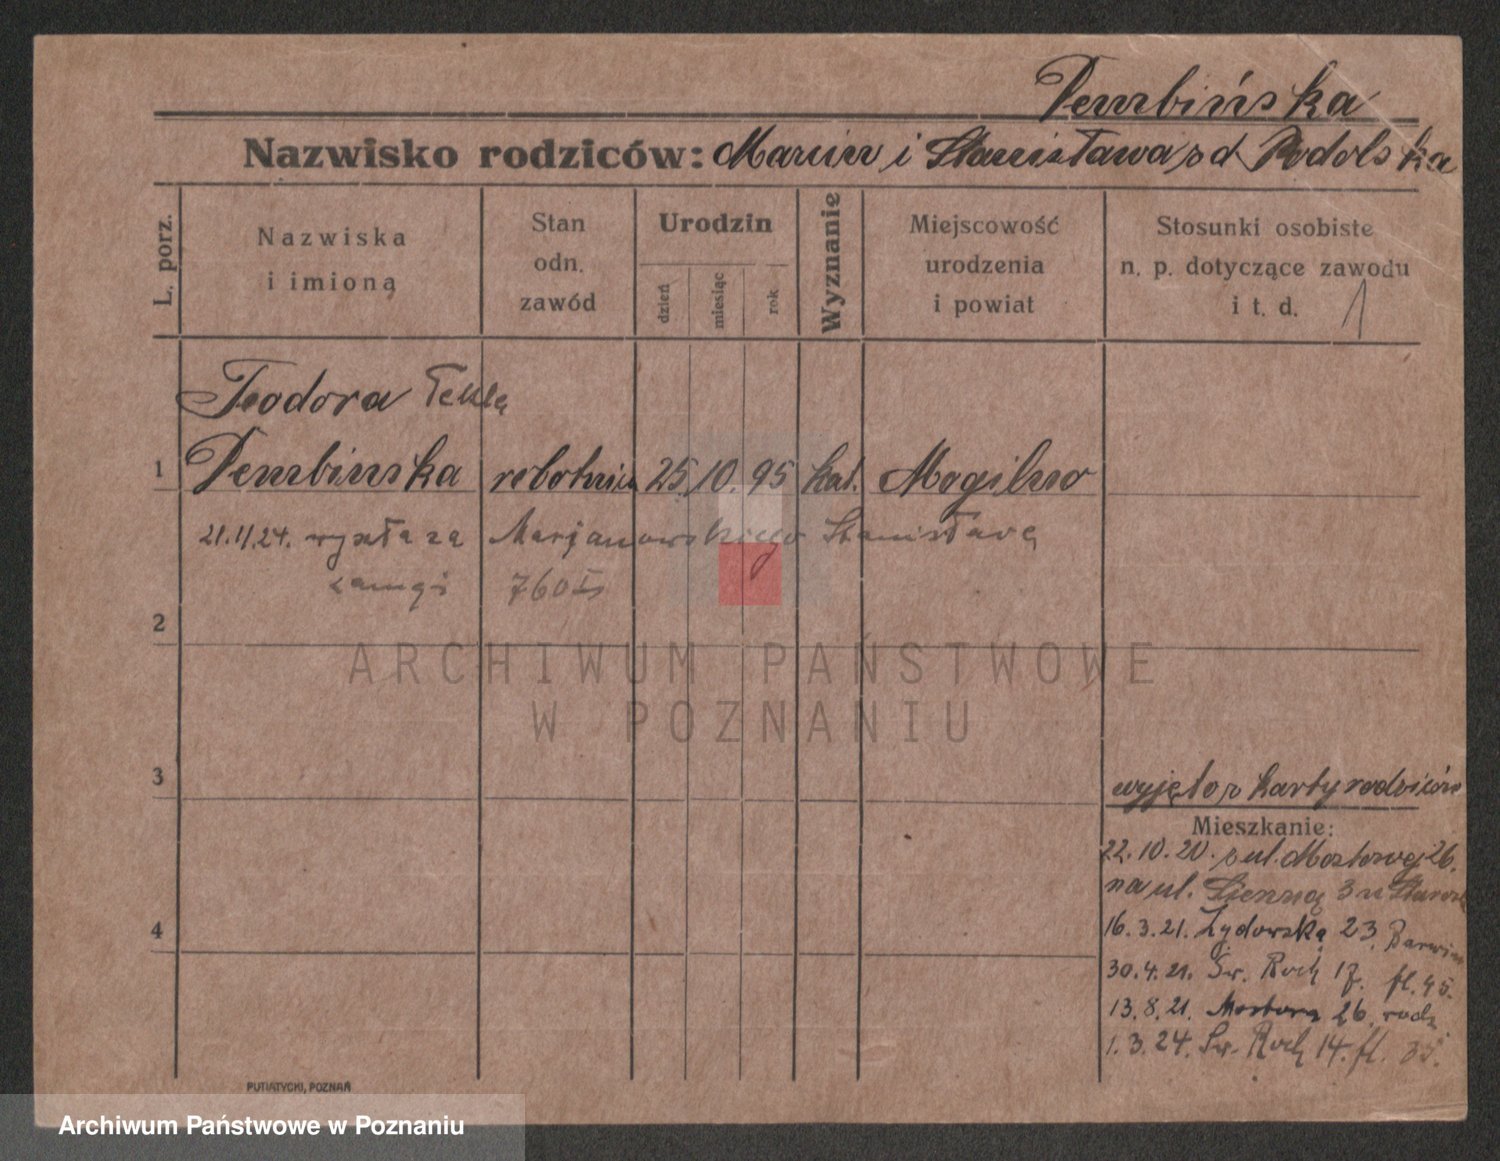 Pembińska
Nazwisko rodziców: Marcin i Stanisława z d. Podolska
L. porz.
Nazwiska
i imioną
Stan
odn.
zawód
Urodzin
dzień
miesiąc
rok
Wyznanie
Miejscowość
urodzenia
i powiat
Stosunki osobiste
n. p. dotyczące zawodu
i t. d.
1
Teodora Tekla
1 Pembińska robotnica 25. 10. 95 kat. Mogilno
21.11.24. wyszła za Marjanowskiego Stanisława
760
2
ARCHIWUM PAŃSTWOWE
W POZNANIU
3
wyjęto z karty rodziców
Mieszkanie:
22.10.20. z ul. Mostowej 26.
na ul. Sienną 3
4
16.3.21. Żydowska 23.
30.4.21. Św. Roch 17. fl. 45.
13.8.21. Mostowa 26. rodz.
1.3.24. Św. Roch 14. fl.
PUTIATYCKI, POZNAŃ
Archiwum Państwowe w Poznaniu